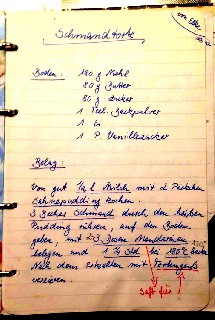 von Elke
Schmandtorte
Boden: 180 g Mehl
80 g Butter
80 g Zucker
1 Teel. Backpulver
1 Ei
1 P. Vanillezucker
Belag:
Von gut 1/2 l Milch mit 2 Päckchen
Sahnepudding kochen.
3 Becher Schmand durch den heißen
Pudding rühren, auf den Boden
geben, mit 2-3 Dosen Mandarinen
belegen und 1 1/4 Std bei 180°C backen
Nach dem Erkalten mit Tortenguß
verzieren.
Saft für